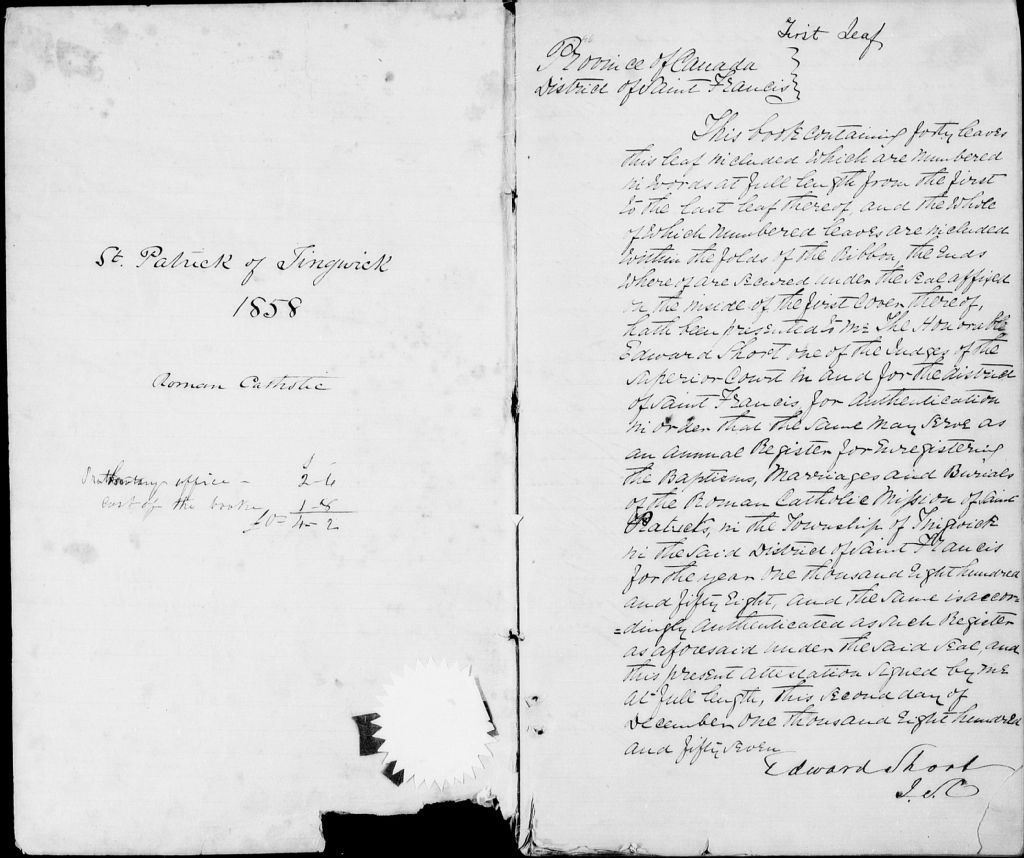 St. Patrick of Tingwick
1858
Roman Catholic
office -
2-6
Cost of the book
1-8
£0=4-2
First Leaf
Province of Canada
District of Saint Francis
This book containing forty leaves
this leaf included which are numbered
in words at full length from the first
to the last leaf thereof, and the whole
of which numbered leaves are included
within the folds of the Ribbon, the Ends
whereof are secured under the seal affixed
on the inside of the first cover thereof,
hath been presented to me The Honorable
Edward Short one of the Judges of the
Superior Court in and for the district
of Saint Francis, for authentication
in order that the same may serve as
an annual Register for Enregistering
the Baptisms, Marriages and Burials
of the Roman Catholic Mission of Saint
Patricks, in the Township of Tingwick
in the said District of Saint Francis
for the year One thousand Eight hundred
and fifty Eight, and the same is accor-
=dingly authenticated as such Register
as aforesaid under the said seal, and
this present attestation signed by me
at full length, this second day of
December One thousand Eight hundred
and fifty seven
Edward Short
J. S. C